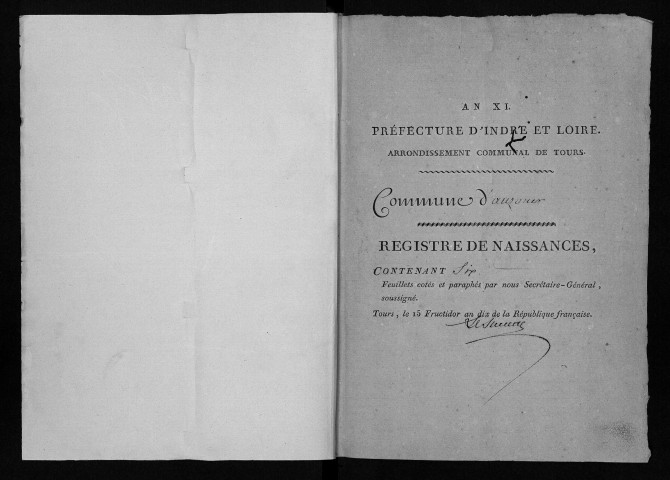 AN XI.
PRÉFECTURE D'INDRE ET LOIRE.
ARRONDISSEMENT COMMUNAL DE TOURS.
Commune d'auzouer
REGISTRE DE NAISSANCES,
CONTENANT Six
Feuillets cotés et paraphés par nous Secrétaire-Général,
soussigné.
Tours, le 15 Fructidor an dix de la République française.